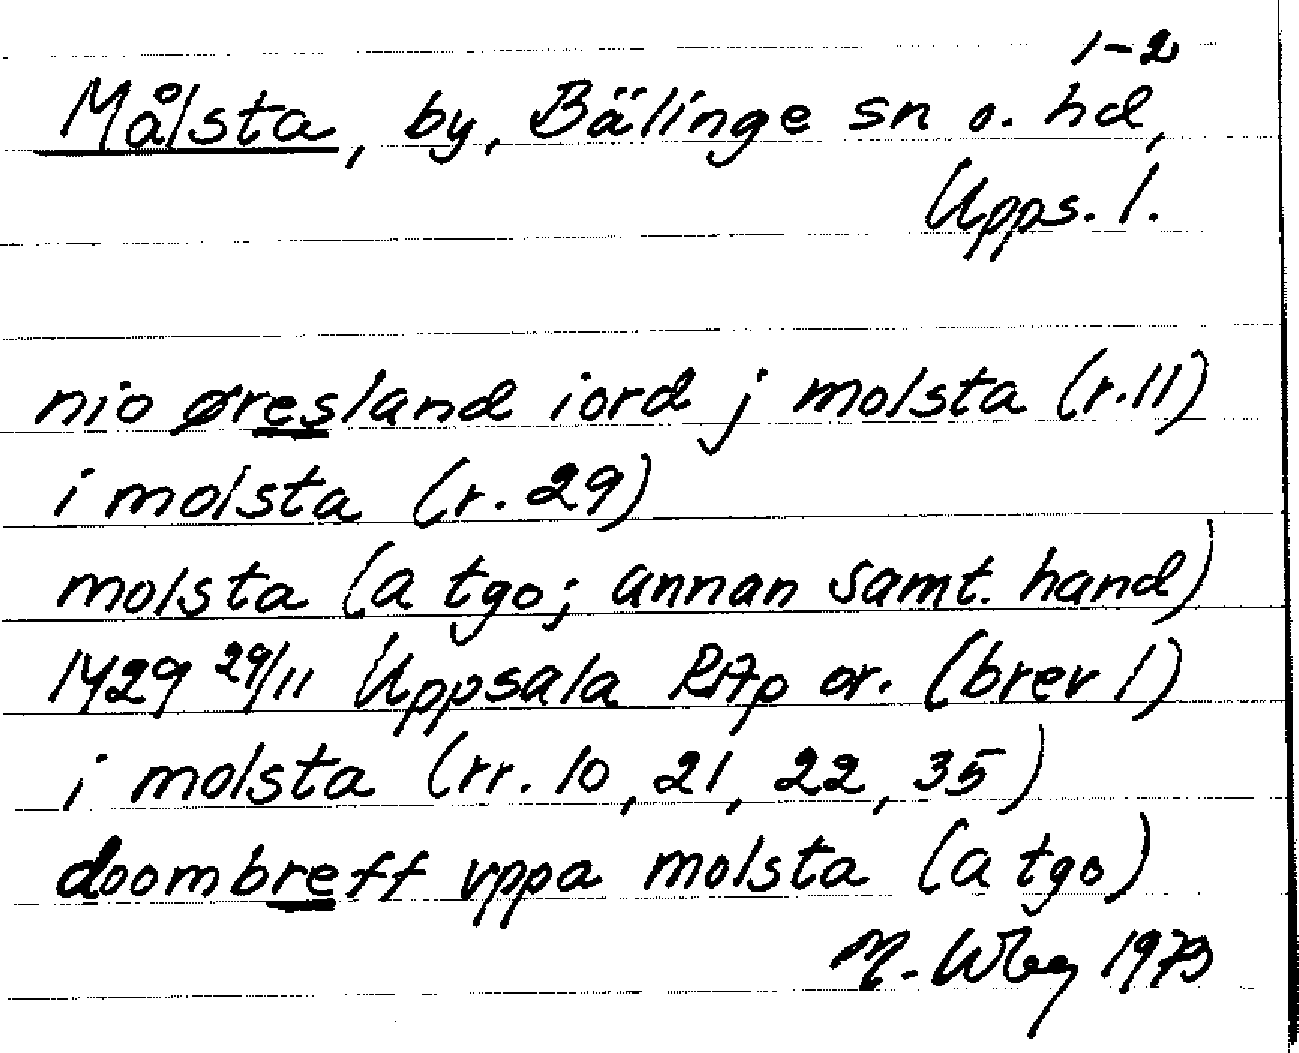 1-2
Målsta, by, Bälinge sn o. hd,
Upps. l.
nio øresland iord j molsta (r.11)
i molsta (r. 29)
molsta (a tgo; annan samt. hand)
1429 29/11 Uppsala RAp or. (brev 1)
i molsta (rr. 10, 21, 22, 35)
doombreff vppa molsta (a tgo)
M. Wbg 1973